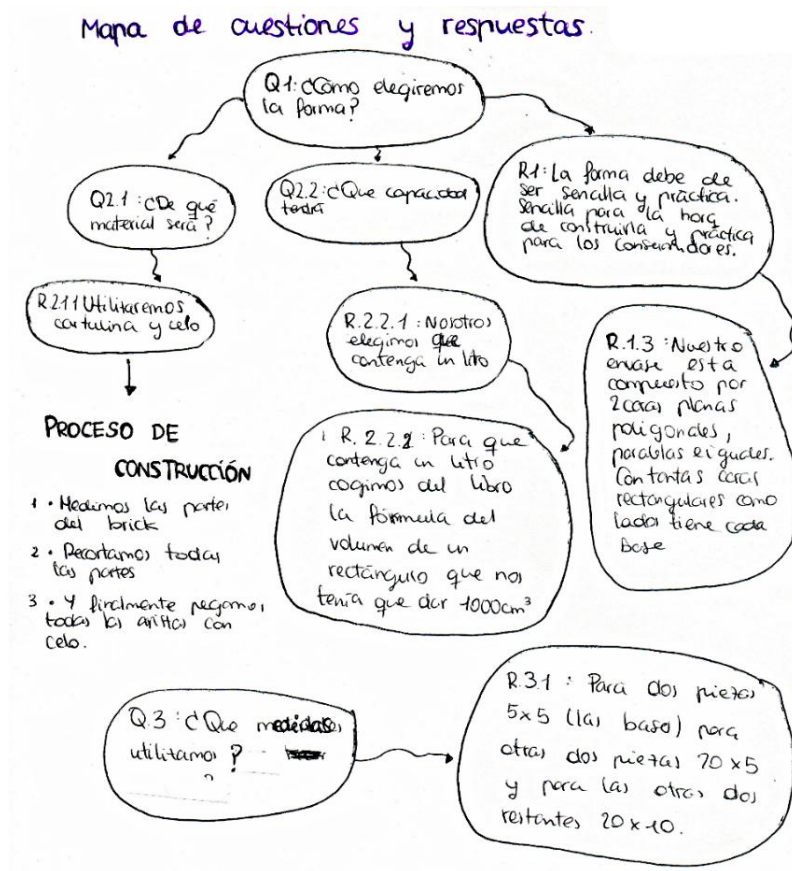 Mapa de cuestiones y respuestas.
Q1: ¿Cómo elegiremos
la forma?
Q2.1: ¿De qué
material será?
Q2.2: ¿Que capacidad
tedrá
R1: La forma debe de
ser sencilla y práctica.
Sencilla para la hora
de construirla y práctica
para los consumidores.
R.2.1.1 Utilitaremos
cartulina y celo
R.2.2.1: Nosotros
elegimos que
contenga un litro
R.1.3: Nuestro
envase esta
compuesto por
2 caras planas
poligonales,
paralelas e iguales.
Con tantas caras
rectangulares como
lados tiene cada
base
PROCESO DE
CONSTRUCCIÓN
1 • Medimos las partes
del brick
2 • Recortamos todas
las partes
3 • Y finalmente pegamos
todas las aristas con
celo.
R.2.2.2: Para que
contenga un litro
cogimos del libro
la fórmula del
volumen de un
rectángulo que nos
tenía que dar 1000cm³
Q.3: ¿Que medidas
utilizamos?
R.3.1: Para dos piezas
5x5 (las base) para
otras dos piezas 20x5
y para las otras dos
restantes 20x10.